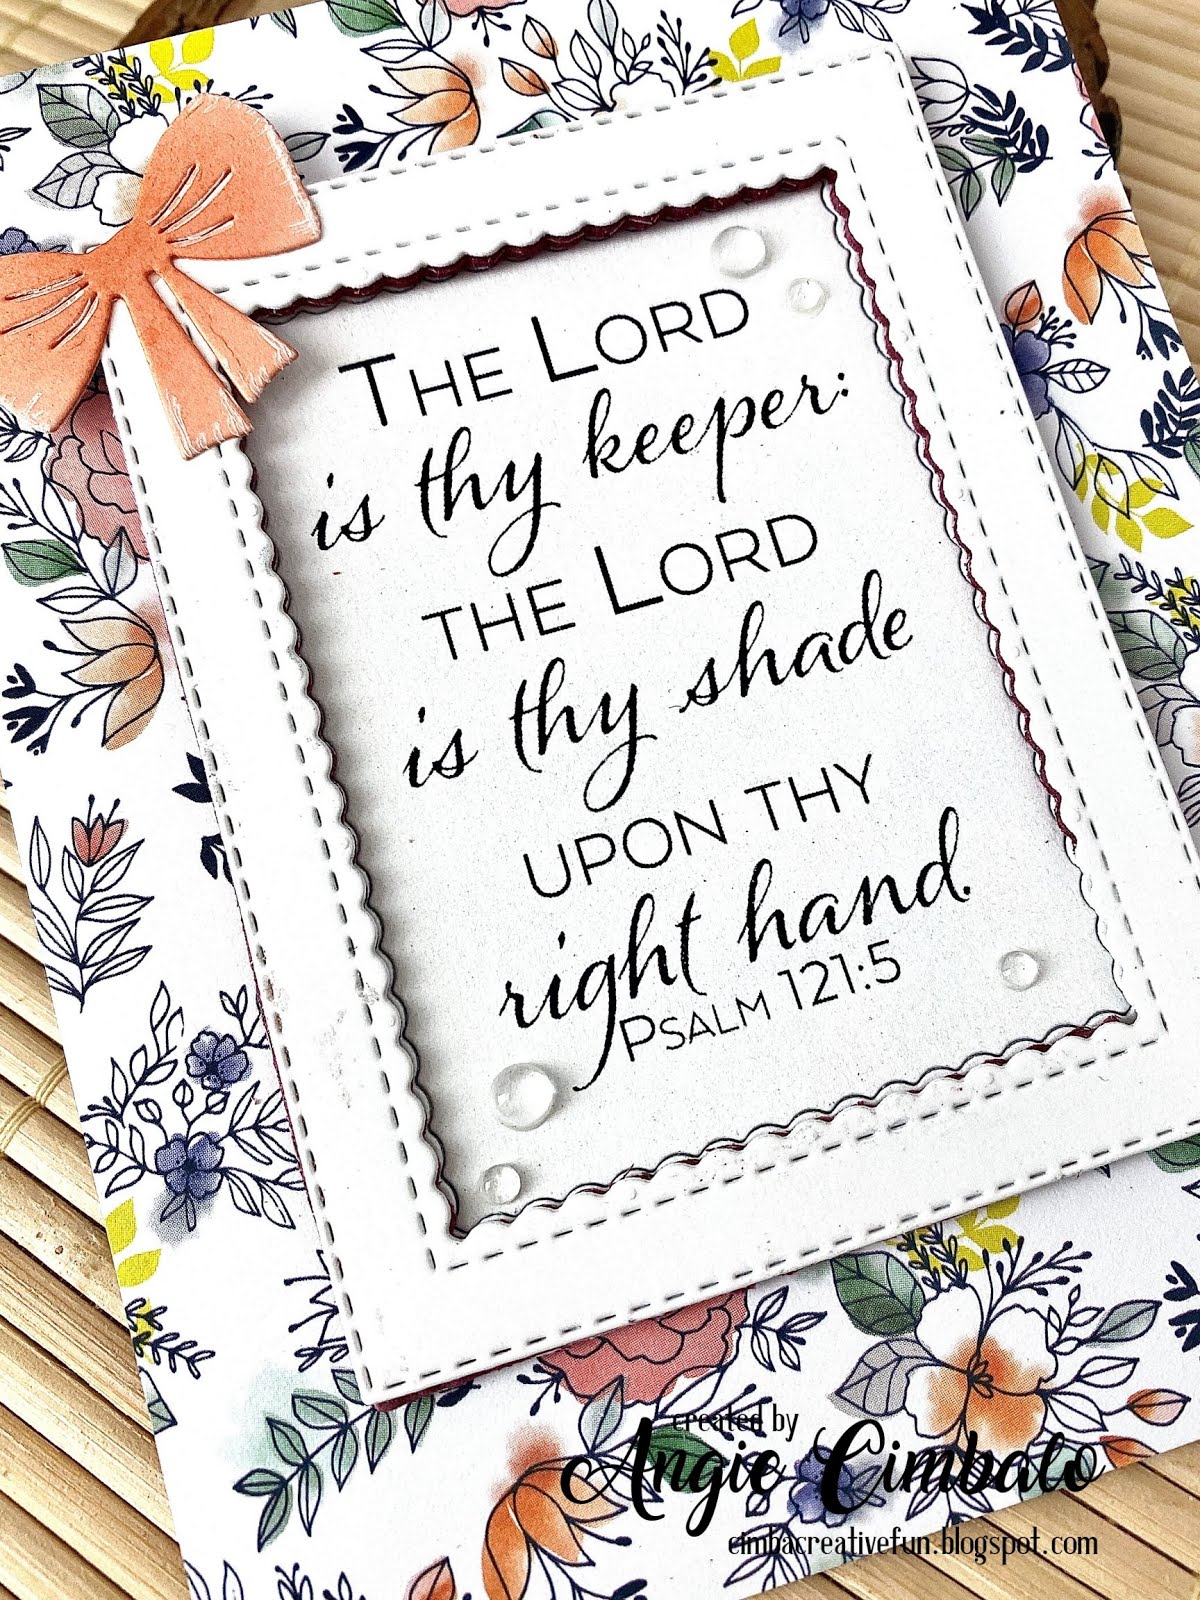 The Lord
is thy keeper:
the Lord
is thy shade
upon thy
right hand.
Psalm 121:5
created by
Angie Cimbalo
cimbacreativefun.blogspot.com